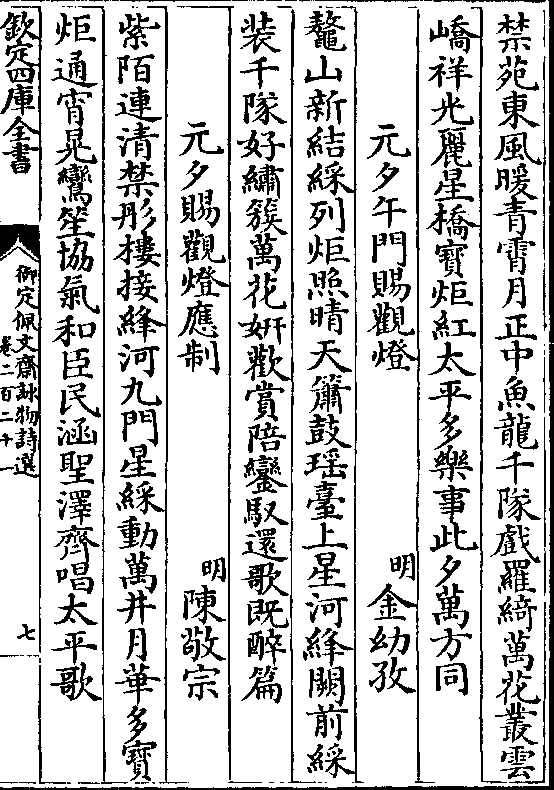 禁苑東風暖青霄月正中魚龍千隊戲羅綺萬花叢雲
嶠祥光麗星橋寶炬紅太平多樂事此夕萬方同
元夕午門賜觀燈　明　金幼孜
鼇山新結綵列炬照晴天簫鼓瑶臺上星河絳闕前綵
装千隊好繡簇萬花姸歡賞陪鑾馭還歌既醉篇
元夕賜觀燈應制　明　陳敬宗
紫陌連清禁彤樓接絳河九門星綵動萬井月華多寳
炬通宵晃鸞笙協氣和臣民涵聖澤齊唱太平歌
欽定四庫全書
御定佩文齋詠物詩選
卷二百二十一
七